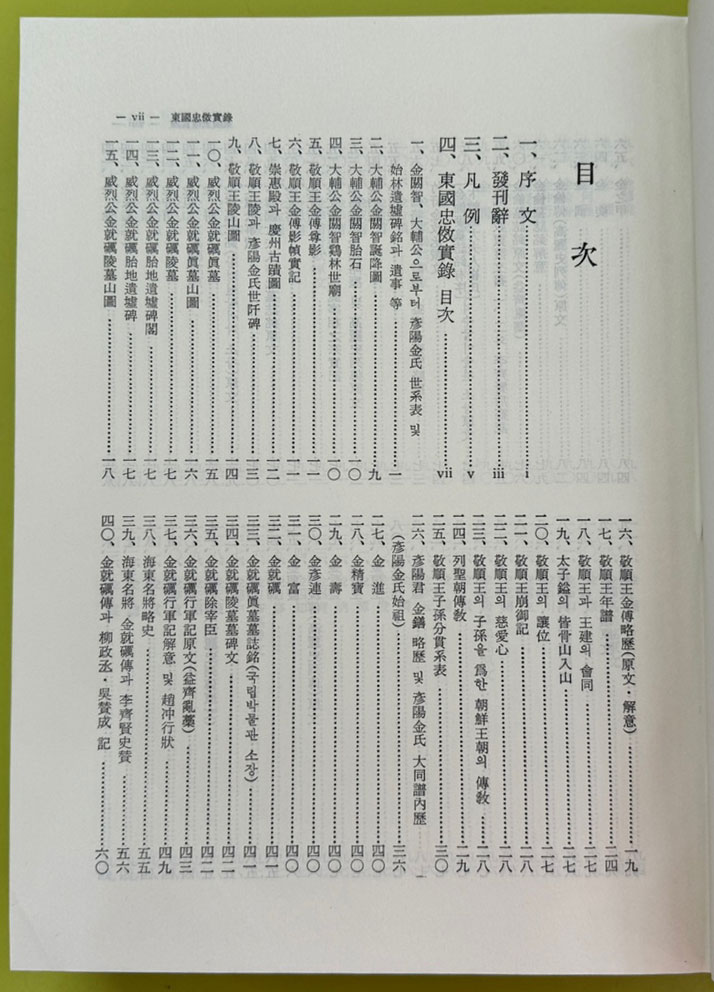 目次
一、序文 ……… i
二、發刊辭 ……… iii
三、凡例 ……… v
四、東國忠傚實錄 目次 ……… vii
一、金閼智、大輔公으로부터 彦陽金氏 世系表 및
始林遺墟碑銘과 遺事 等 ……… 一
二、大輔公金閼智誕降圖 ……… 九
三、大輔公金閼智胎石 ……… 一〇
四、大輔公金閼智鷄林世廟 ……… 一〇
五、敬順王金傅尊影 ……… 一一
六、敬順王金傅影幀實記 ……… 一一
七、崇惠殿과 慶州古蹟圖 ……… 一二
八、敬順王陵과 彦陽金氏世阡碑 ……… 一三
九、敬順王陵山圖 ……… 一四
一〇、威烈公金就礪眞墓 ……… 一五
一一、威烈公金就礪眞墓山圖 ……… 一六
一二、威烈公金就礪陵墓 ……… 一七
一三、威烈公金就礪胎地遺墟碑閣 ……… 一七
一四、威烈公金就礪胎地遺墟碑 ……… 一七
一五、威烈公金就礪陵墓山圖 ……… 一八
一六、敬順王金傅略歷(原文·解意) ……… 一九
一七、敬順王年譜 ……… 二四
一八、敬順王과 王建의 會同 ……… 二七
一九、太子鎰의 皆骨山入山 ……… 二七
二〇、敬順王의 讓位 ……… 二七
二一、敬順王崩御記 ……… 二八
二二、敬順王의 慈愛心 ……… 二八
二三、敬順王의 子孫을 爲한 朝鮮王朝의 傳敎 ……… 二八
二四、列聖朝傳敎 ……… 二九
二五、敬順王子孫分貫系表 ……… 三〇
二六、彦陽君 金鐥 略歷 및 彦陽金氏 大同譜內歷
(彦陽金氏始祖) ……… 三六
二七、金進 ……… 四〇
二八、金精寶 ……… 四〇
二九、金壽 ……… 四〇
三〇、金彦連 ……… 四〇
三一、金富 ……… 四〇
三二、金就礪 ……… 四一
三三、金就礪眞墓墓誌銘(국립박물관 소장) ……… 四一
三四、金就礪陵墓墓碑文 ……… 四二
三五、金就礪除宰臣 ……… 四二
三六、金就礪行軍記原文(益齊亂藁) ……… 四三
三七、金就礪行軍記解意 및 趙冲行狀 ……… 四九
三八、海東名將略史 ……… 五五
三九、海東名將 金就礪傳과 李齊賢史贊 ……… 五六
四〇、金就礪傳과 柳政丞·吳贊成 記 ……… 六〇
— vii — 東國忠傚實錄